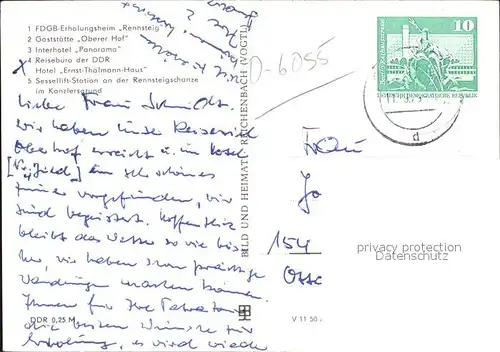 1 FDGB-Erholungsheim „Rennsteig"
2 Gaststätte „Oberer Hof"
3 Interhotel „Panorama"
4 Reisebüro der DDR
Hotel „Ernst-Thälmann-Haus"
5 Sessellift-Station an der Rennsteigschanze
im Kanzlersgrund
Liebe Frau Schmidt.
wir haben unser Reiseziel
Oberhof erreicht u. im Hotel
ein sehr schönes
Zimmer vorgefunden, wir
sind begeistert. Hoffentlich
bleibt das Wetter so wie bis
her, wir haben schon prächtige
Wanderungen machen können.
Ihnen für Ihre
die besten Wünsche für
Erholung, es wird wieder
DDR 0,25 M
BILD UND HEIMAT REICHENBACH (VOGTL)
O-6055
V 11 50
10
DEUTSCHE DEMOKRATISCHE REPUBLIK
d
Frau
154
privacy protection
Datenschutz